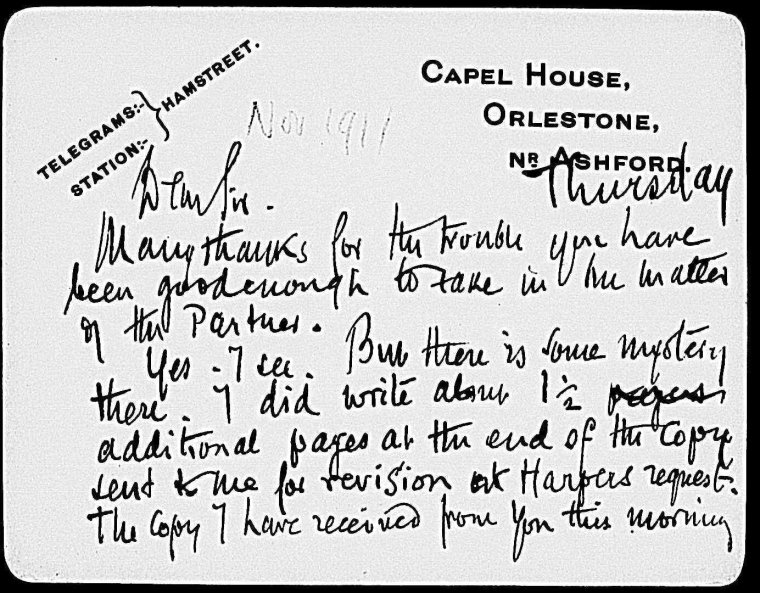 TELEGRAMS:-
STATION:-
HAMSTREET.
Nov 1911
CAPEL HOUSE,
ORLESTONE,
NR ASHFORD.
Thursday
Dear Sir.
Many thanks for the trouble you have
been good enough to take in the matter
of the Partner.
Yes. I see. But there is some mystery
there. I did write about 1½ pages
additional pages at the end of the copy
sent to me for revision at Harpers request.
The copy I have received from you this morning